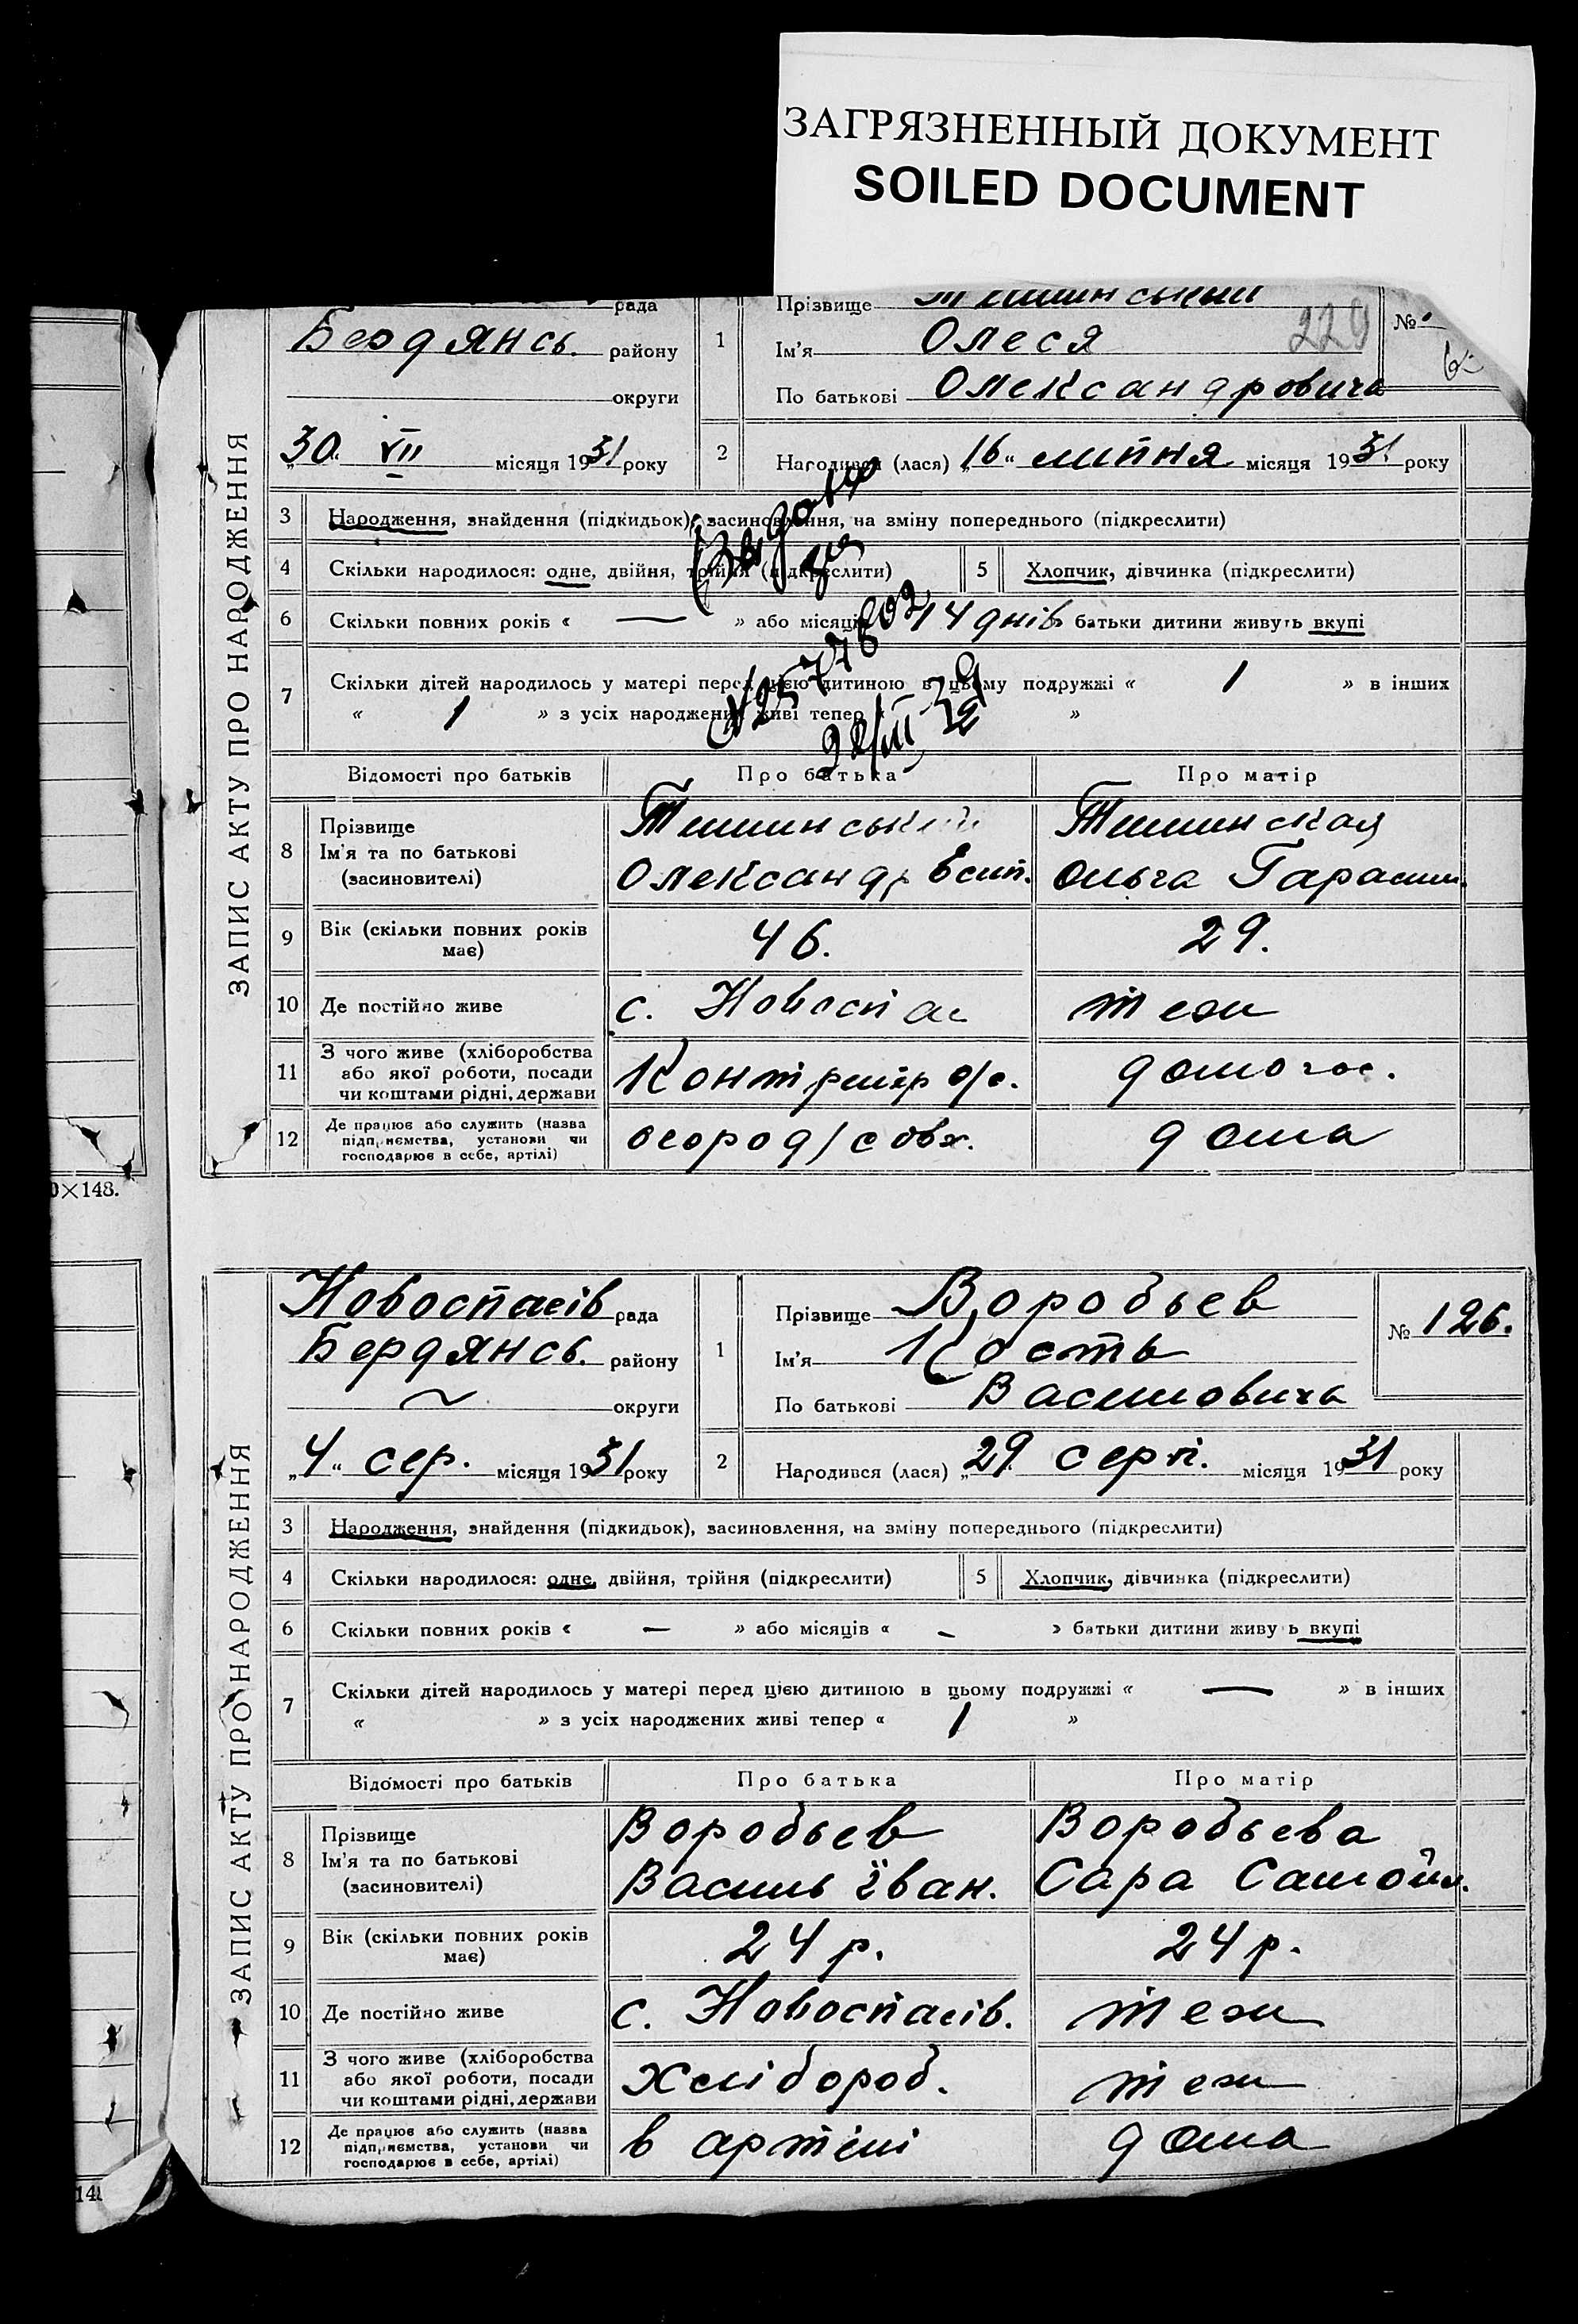 ЗАГРЯЗНЕННЫЙ ДОКУМЕНТ
SOILED DOCUMENT
рада
Бердянсь. району
округи
„30“ VII місяця 1931 року
1
Прізвище
Ім'я Олеся
По батькові Олександровича
229
№
2
Народився (лася) „16“ липня місяця 1931 року
ЗАПИС АКТУ ПРО НАРОДЖЕННЯ
3 Народження, знайдення (підкидьок), засиновлення, на зміну попереднього (підкреслити)
4 Скільки народилося: одне, двійня, трійня (підкреслити)
5 Хлопчик, дівчинка (підкреслити)
6 Скільки повних років « — » або місяців 14 днів батьки дитини живуть вкупі
7 Скільки дітей народилось у матері перед цією дитиною в цьому подружжі « 1 » в інших
« 1 » з усіх народжених живі тепер « 2 »
Відомості про батьків
Про батька
Про матір
8 Прізвище
Ім'я та по батькові
(засиновителі)
Тишинський
Олександр Есип.
Тишинская
Ольга Гарасим.
9 Вік (скільки повних років
має)
46.
29.
10 Де постійно живе
с. Новоспас
теж
11 З чого живе (хліборобства
або якої роботи, посади
чи коштами рідні, держави
домогос.
12 Де працює або служить (назва
підприємства, установи чи
господарює в себе, артілі)
огород/совх.
дома
0×148.
Новоспасів рада
Бердянсь. району
~ округи
„4“ сер. місяця 1931 року
1
Прізвище Воробьев
Ім'я Кость
По батькові Васильовича
№ 126.
2
Народився (лася) „29“ серп. місяця 1931 року
ЗАПИС АКТУ ПРО НАРОДЖЕННЯ
3 Народження, знайдення (підкидьок), засиновлення, на зміну попереднього (підкреслити)
4 Скільки народилося: одне, двійня, трійня (підкреслити)
5 Хлопчик, дівчинка (підкреслити)
6 Скільки повних років « — » або місяців « - » батьки дитини живу ь вкупі
7 Скільки дітей народилось у матері перед цією дитиною в цьому подружжі « — » в інших
« » з усіх народжених живі тепер « 1 »
Відомості про батьків
Про батька
Про матір
8 Прізвище
Ім'я та по батькові
(засиновителі)
Воробьев
Василь Іван.
Воробьева
Сара Самойл.
9 Вік (скільки повних років
має)
24 р.
24 р.
10 Де постійно живе
с. Новоспасів.
теж
11 З чого живе (хліборобства
або якої роботи, посади
чи коштами рідні, держави
хлібороб.
теж
12 Де працює або служить (назва
підприємства, установи чи
господарює в себе, артілі)
в артілі
дома